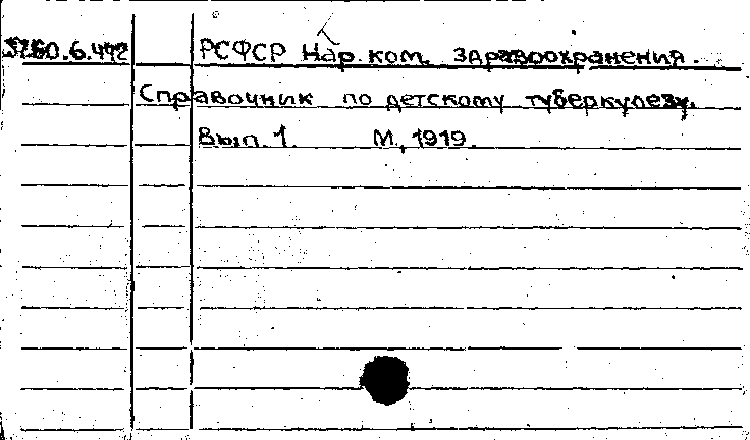 3260.6.442 РСФСР Нар. ком. здравоохранения.
Справочник по детскому туберкулезу.
Вып. 1. М., 1919.